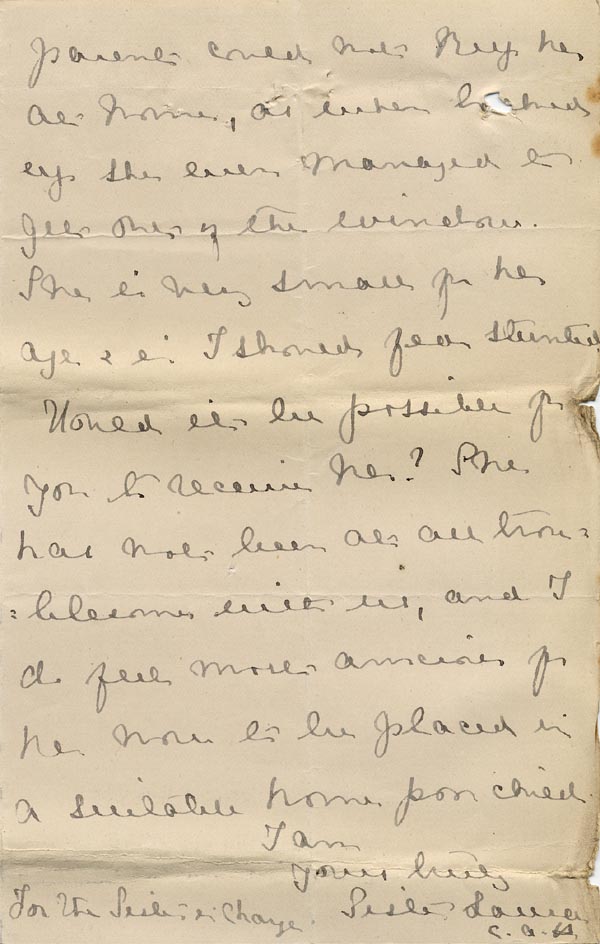 parents could not keep her
at home, as when locked
up she even managed to
get out of the window.
She is very small for her
age & is I should fear stunted
Would it be possible for
you to receive her? She
has not been at all trou=
=blesome with us, and I
do feel most anxious for
her now to be placed in
a suitable home poor child.
I am
Yours truly
For the Sister in Charge. Sister Laura
C. a.